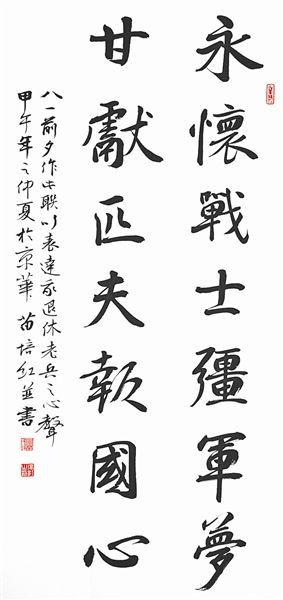 永懷戰士彊軍夢
甘獻匹夫報國心
八一前夕作此联以表達我退休老兵之心聲
甲午年之仲夏於京華苗培红並書